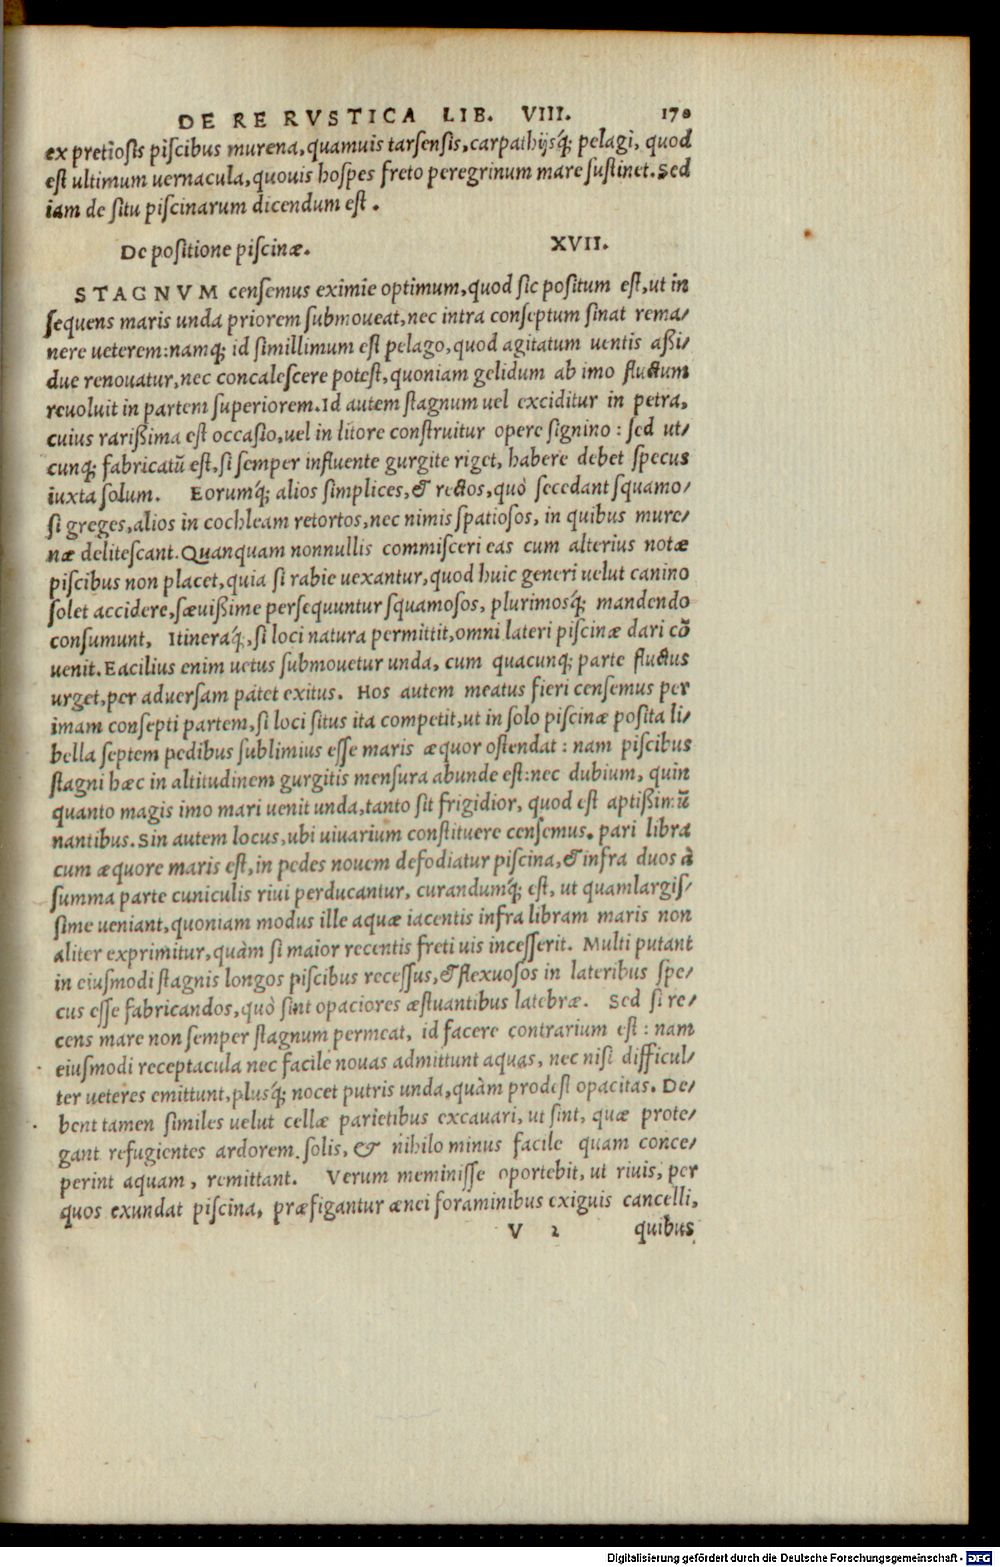 DE RE RVSTICA LIB. VIII. 170
ex pretiosis piscibus murena, quamuis tarsensis, carpathijsq́; pelagi, quod
est ultimum uernacula, quouis hospes freto peregrinum mare sustinet. Sed
iam de situ piscinarum dicendum est.
De positione piscinæ. XVII.
STAGNVM censemus eximie optimum, quod sic positum est, ut in
sequens maris unda priorem submoueat, nec intra conseptum sinat rema/
nere ueterem: namq; id simillimum est pelago, quod agitatum uentis aßi/
due renouatur, nec concalescere potest, quoniam gelidum ab imo fluctum
reuoluit in partem superiorem. Id autem stagnum uel exciditur in petra,
cuius rarißima est occasio, uel in litore construitur opere signino: sed ut/
cunq; fabricatũ est, si semper influente gurgite riget, habere debet specus
iuxta solum. Eorumq́; alios simplices, & rectos, quò secedant squamo/
si greges, alios in cochleam retortos, nec nimis spatiosos, in quibus mure/
næ delitescant. Quanquam nonnullis commisceri eas cum alterius notæ
piscibus non placet, quia si rabie uexantur, quod huic generi uelut canino
solet accidere, sæuißime persequuntur squamosos, plurimosq́; mandendo
consumunt, Itineraq́;, si loci natura permittit, omni lateri piscinæ dari cõ
uenit. Eacilius enim uetus submouetur unda, cum quacunq; parte fluctus
urget, per aduersam patet exitus. Hos autem meatus fieri censemus per
imam consepti partem, si loci situs ita competit, ut in solo piscinæ posita li/
bella septem pedibus sublimius esse maris æquor ostendat: nam piscibus
stagni hæc in altitudinem gurgitis mensura abunde est: nec dubium, quin
quanto magis imo mari uenit unda, tanto sit frigidior, quod est aptißimũ
nantibus. Sin autem locus, ubi uiuarium constituere censemus, pari libra
cum æquore maris est, in pedes nouem defodiatur piscina, & infra duos à
summa parte cuniculis riui perducantur, curandumq́; est, ut quamlargis/
sime ueniant, quoniam modus ille aquæ iacentis infra libram maris non
aliter exprimitur, quàm si maior recentis freti uis incesserit. Multi putant
in eiusmodi stagnis longos piscibus recessus, & flexuosos in lateribus spe/
cus esse fabricandos, quò sint opaciores æstuantibus latebræ. Sed si re/
cens mare non semper stagnum permeat, id facere contrarium est: nam
eiusmodi receptacula nec facile nouas admittunt aquas, nec nisi difficul/
ter ueteres emittunt, plusq́; nocet putris unda, quàm prodest opacitas. De/
bent tamen similes uelut cellæ parietibus excauari, ut sint, quæ prote/
gant refugientes ardorem solis, & nihilo minus facile quam conce/
perint aquam, remittant. Verum meminisse oportebit, ut riuis, per
quos exundat piscina, præfigantur ænei foraminibus exiguis cancelli,
V 2 quibus
Digitalisierung gefördert durch die Deutsche Forschungsgemeinschaft - DFG